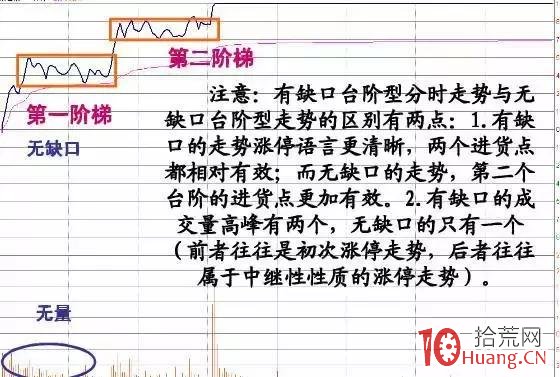 第二阶梯
第一阶梯
无缺口
注意：有缺口台阶型分时走势与无
缺口台阶型走势的区别有两点：1.有缺
口的走势涨停语言更清晰，两个进货点
都相对有效；而无缺口的走势，第二个
台阶的进货点更加有效。2.有缺口的成
交量高峰有两个，无缺口的只有一个
（前者往往是初次涨停走势，后者往往
属于中继性性质的涨停走势）。
无量
10 拾荒网
Huang.CN